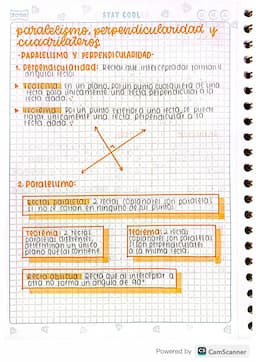 STAY COOL
paralelismo, perpendicularidad y
cuadriláteros
-PARALELISMO Y PERPENDICULARIDAD-
1. Perpendicularidad: Rectas que interceptadas forman 4
ángulos rectos.
Teorema: En un plano, por un punto cualquiera de una
recta pasa únicamente una recta perpendicular a la
recta dada.
Teorema: Por un punto exterior a una recta, se puede
trazar únicamente una recta perpendicular a la
recta dada.
2. Paralelismo:
Rectas paralelas: 2 rectas coplanares son paralelas
si no se cortan en ninguno de sus puntos.
Teorema: 2 rectas
paralelas diferentes,
determinan un único
plano que las contiene.
Teorema: 2 rectas
coplanares son paralelas
si son perpendiculares
a la misma recta.
Recta oblicua: Recta que al interceptar a
otra no forma un ángulo de 90°
Powered by CS CamScanner